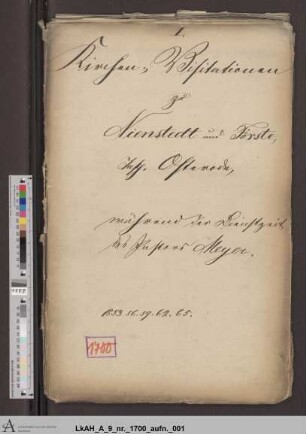 1.
Kirchen-Visitationen
zu
Nienstedt und Förste,
Insp. Osterode,
während der Dienstzeit
des Pastors Meyer.
1853. 56. 59. 62. 65.
1700
LkAH_A_9_nr._1700_aufn._001